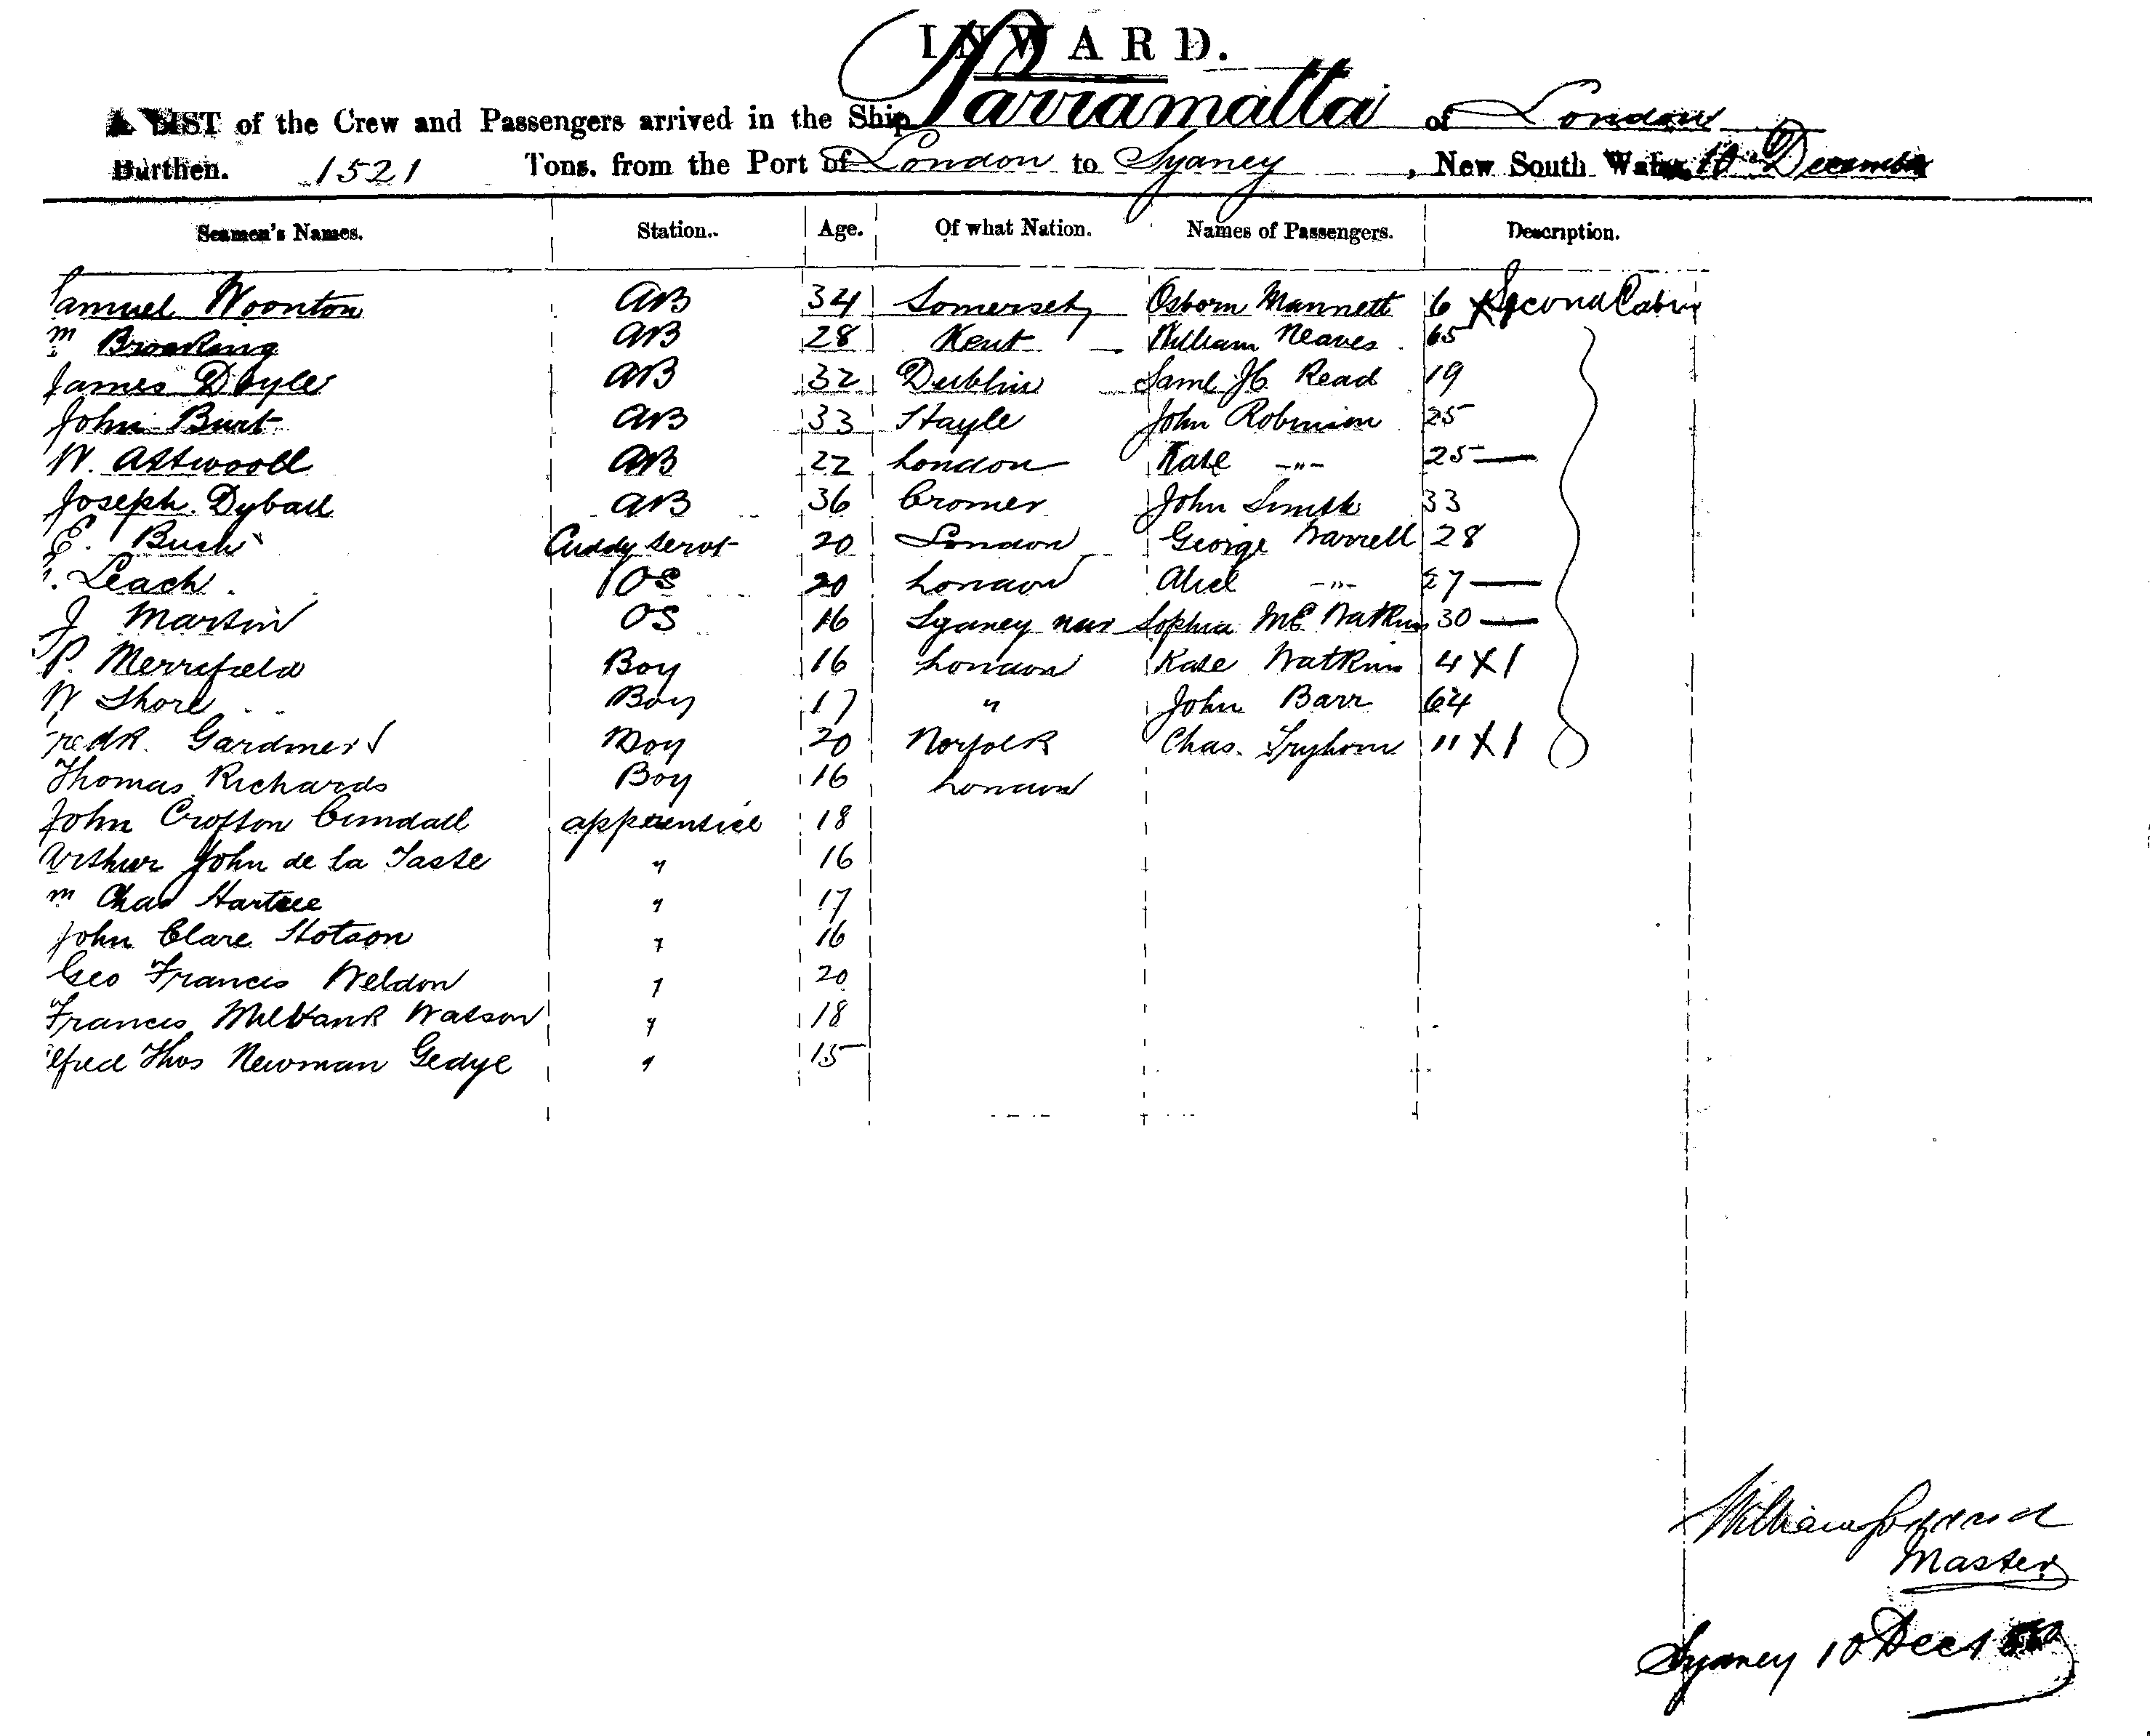 INWARD.
A LIST of the Crew and Passengers arrived in the Ship Parramatta of London
Burthen. 1521 Tons. from the Port of London to Sydney, New South Wales, 10 December
Seamen's Names. Station. Age. Of what Nation. Names of Passengers. Description.
Samuel Woonton AB 34 Somerset Osborn Mannett 6 X Second Cabin
Wm Brocking AB 28 Kent William Neaves 65
James Doyle AB 32 Dublin Saml H. Read 19
John Burt AB 33 Hayle John Robinson 25
W. Attwooll AB 22 London Kate -"- 25 —
Joseph Dyball AB 36 Cromer John Smith 33
E. Bush Cuddy Servt 20 London George Warrell 28
Leach OS 20 London Alice -"- 27 —
J Martin OS 16 Sydney nsw Sophia McE Watkins 30 —
P. Merrifield Boy 16 London Kate Watkins 4 X 1
W Shore Boy 17 " John Barr 64
Fredk. Gardiner Boy 20 Norfolk Chas. Tryhorn 11 X 1
Thomas Richards Boy 16 London
John Crofton Cundall apprentice 18
Arthur John de La Taste " 16
Wm Chas Hartree " 17
John Clare Hotson " 16
Geo Francis Weldon " 20
Francis Milbank Watson " 18
Alfred Thos Newman Gedye " 15
William
Master
Sydney 10 Dec